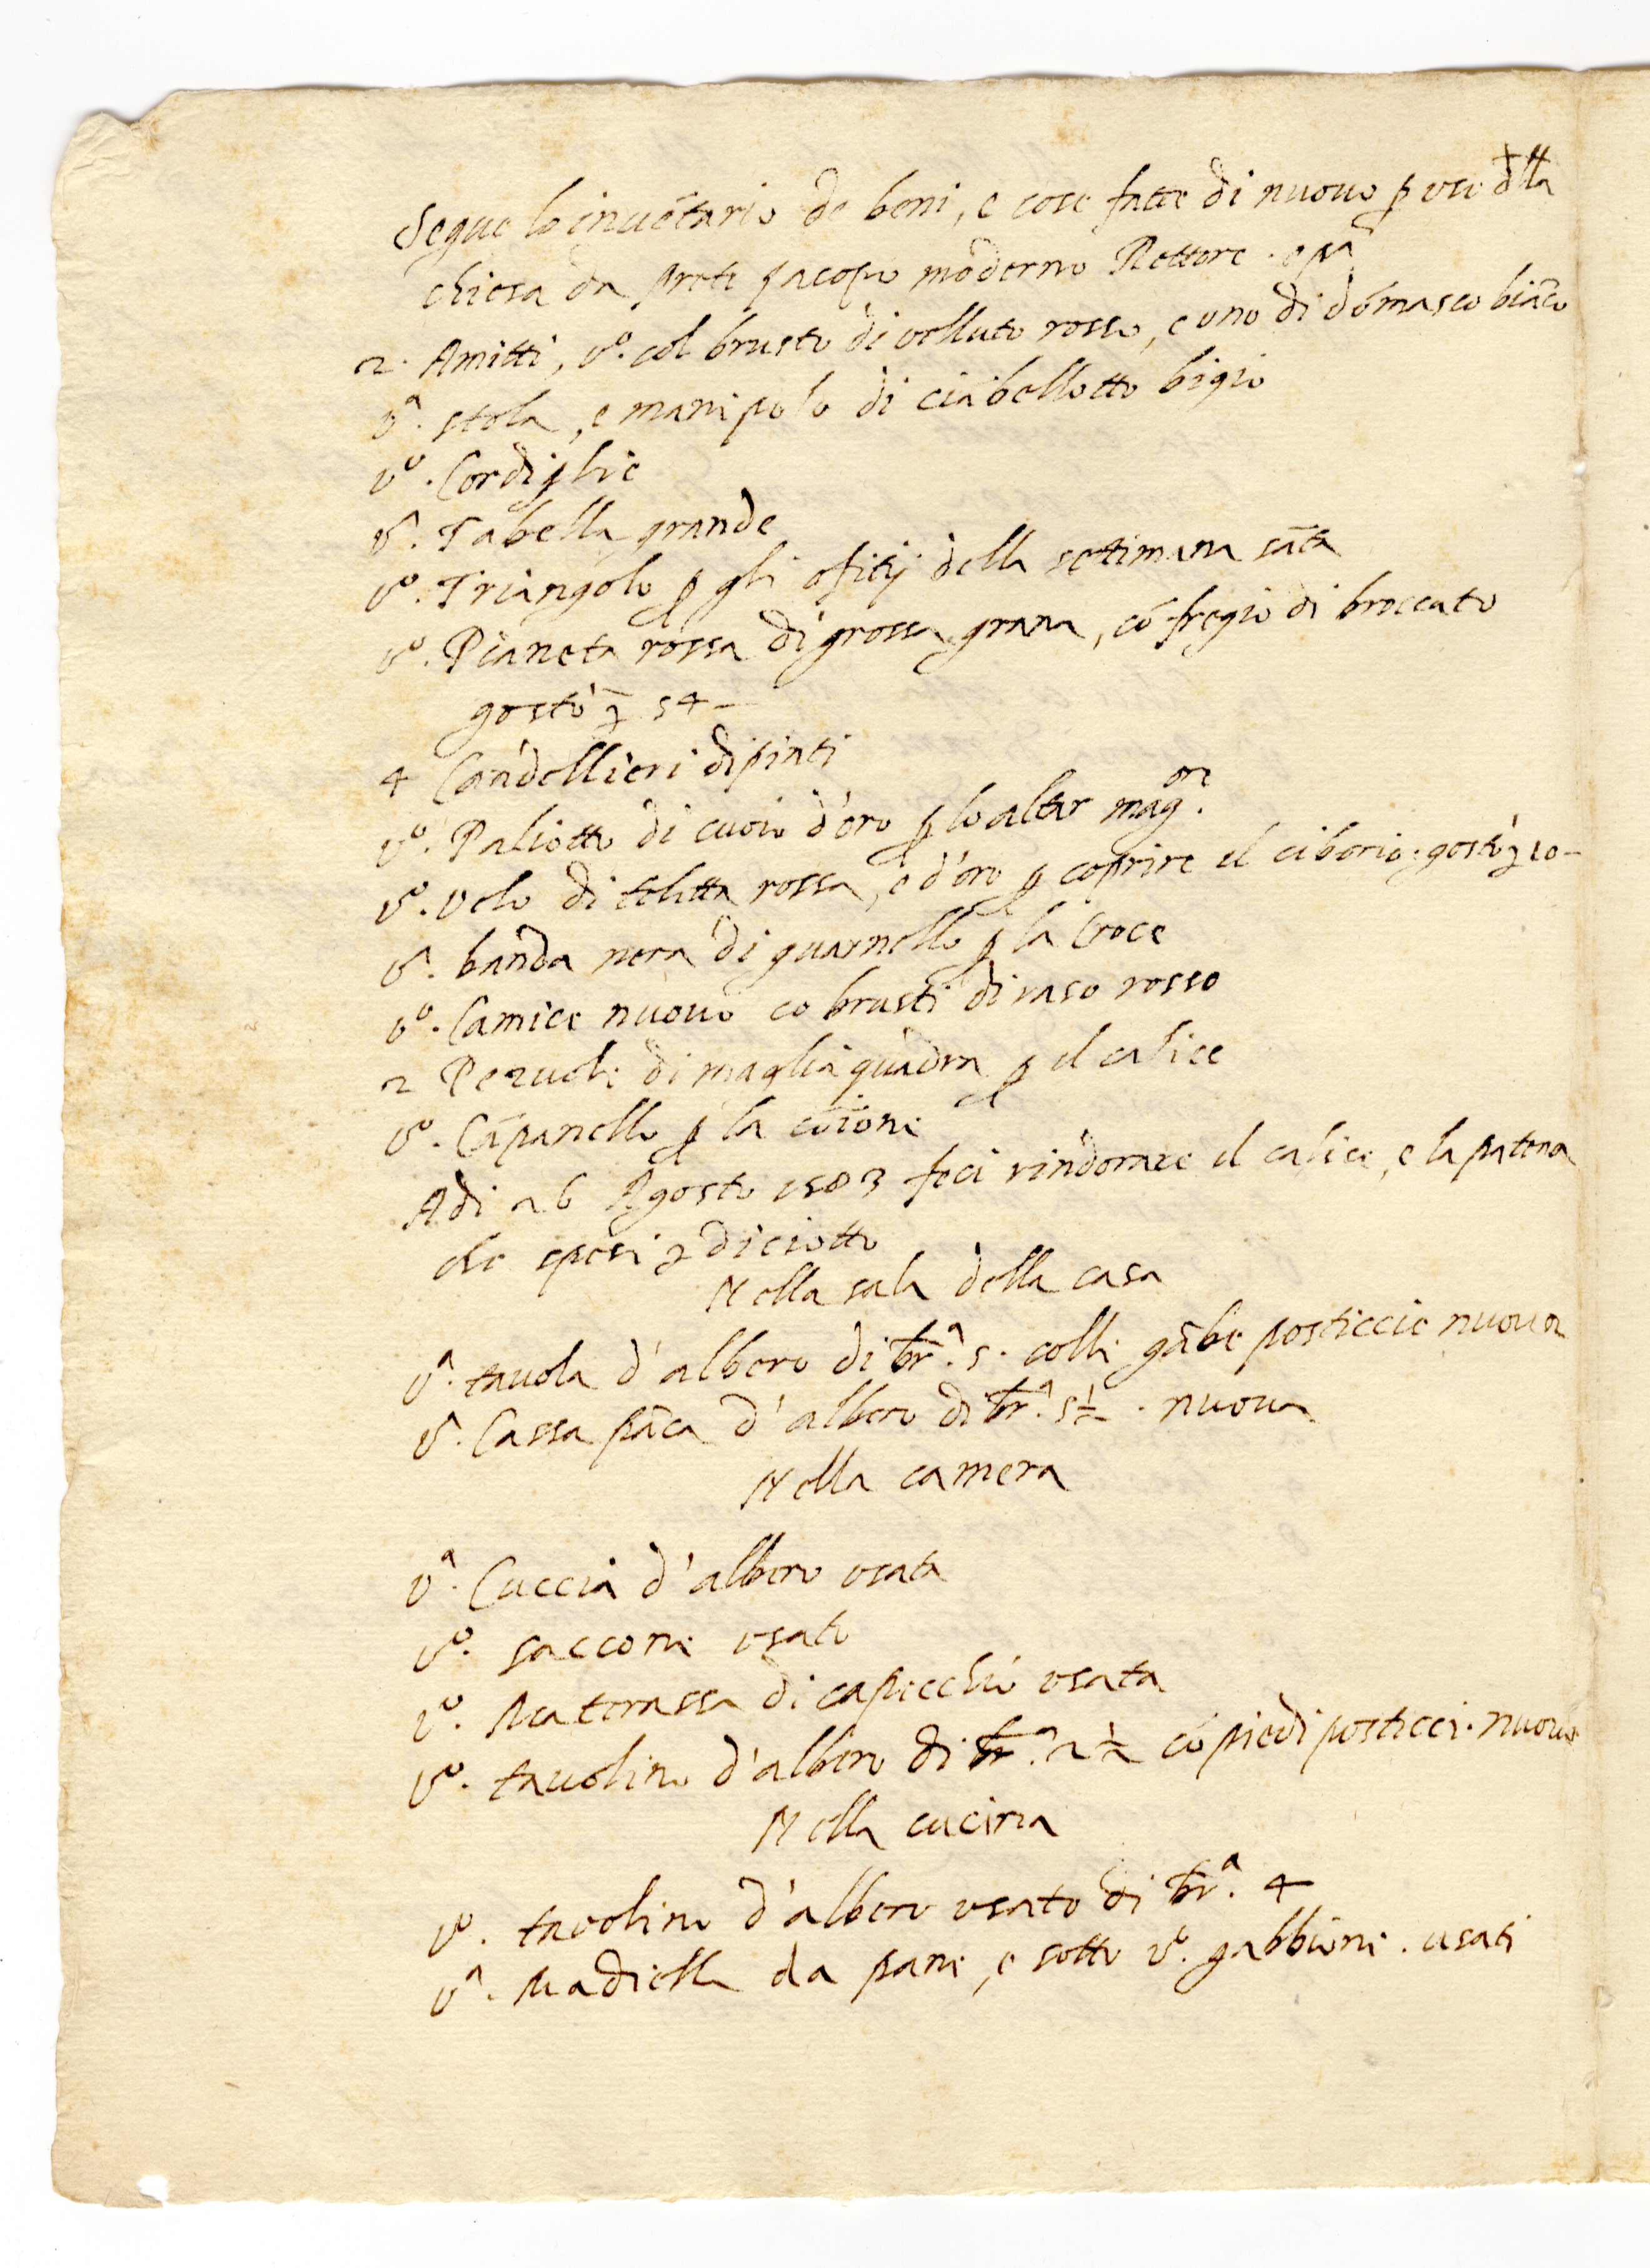 Segue lo invẽtario de beni, e cose fatte di nuovo ꝑ uso dlla
chiesa da prete Jacopo moderno Rettore. e pª
2. Amitti, vº. col brusto di velluto rosso, e uno di domasco biãco
vª. stola, e manipolo di ciãbellotto bigio
vº. Cordiglie
vª. Tabella grande
vº. Triangolo ꝑ gli ofitij della settimana sãta
vº. Pianeta rossa di grossa grana, cõ fregio di broccato
gostò ʒ 54 —
4 Candellieri dipinti
vº. Paliotto di cuoio d'oro ꝑ lo altar magᵒʳᵉ.
vº. velo di teletta rossa, e d'oro ꝑ coprire il ciborio. gostò ʒ 10 —
vª. banda nera di guarnello ꝑ la Croce
vº. Camice nuovo co brusti di raso rosso
2 Pezuole di maglia quadra ꝑ il calice
vº. Cãpanello ꝑ la cõione
Adi 26 Agosto 1583 feci rindorare il calice, e la patena
che spesi ʒ diciotto
Nella sala della casa
vª. tavola d'albero di brª. 5. colle gãbe posticcie nuova
vª. Cassa pãca d'albero di brª. 5½. nuova
Nella camera
vª. Cuccia d'albero usata
vº. saccone usato
vº. Materassa di capecchio usata
vº. tavolino d'albero di brª. 2½ cõ piedi posticci. nuovo
Nella cucina
vº. tavolino d'albero usato di brª. 4
vª. Madiella da pane, e sotto vº. gabbione. usati